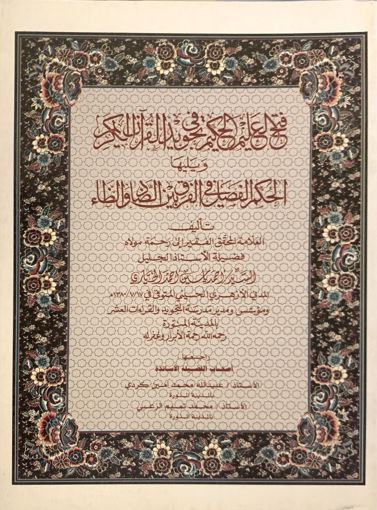 فتح العليم الحكيم في تجويد القرآن الكريم
ويليها
الحكم الفصل في الفرق بين الضاد والظاء
تأليف
العلامة المحقق الفقير إلى رحمة مولاه
فضيلة الأستاذ الجليل
السيد أحمد ياسين أحمد الخياري
المدني الأزهري الحسيني المتوفى في ١٣٨٠/٧/١٧هـ
ومؤسس ومدير مدرسة التجويد والقراءات العشر
بالمدينة المنورة
رحمه الله رحمة الأبرار وغفر له
راجعها
أصحاب الفضيلة الأساتذة
الأستاذ / عبدالله محمد أمين كردي
بالمدينة المنورة
الأستاذ / محمد تميم الزعبي
بالمدينة المنورة